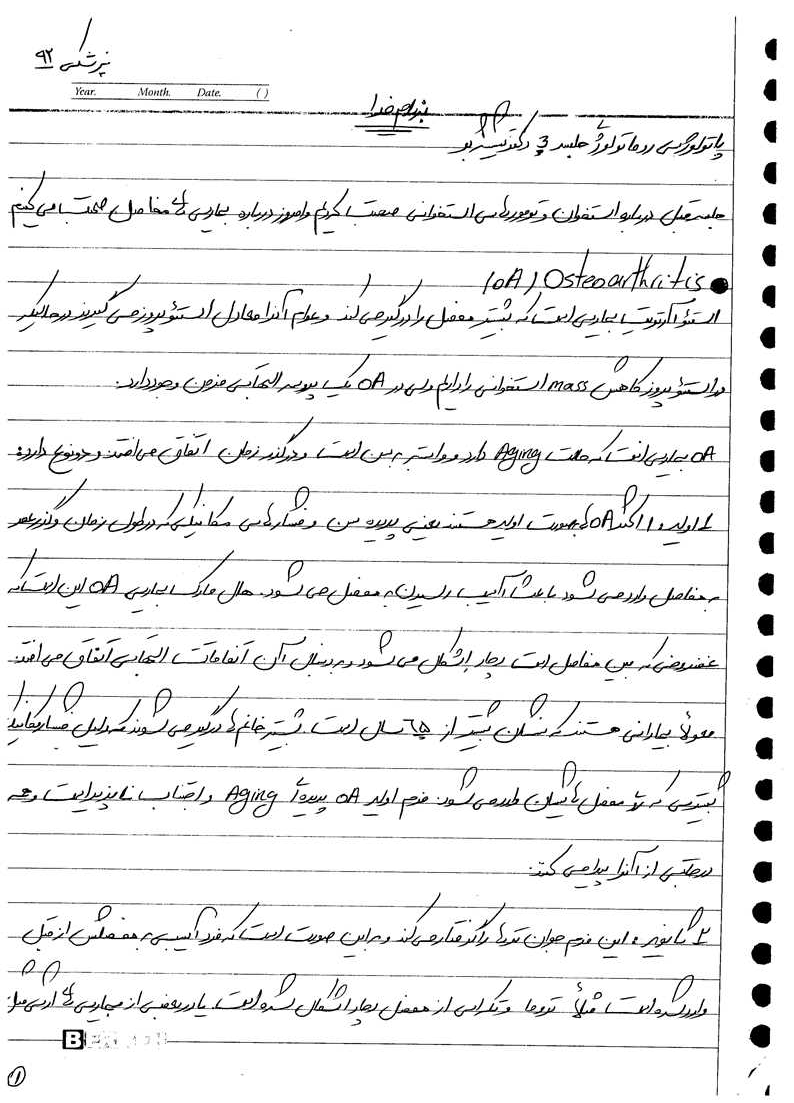 پزشکی ۹۲
Year. Month. Date. ( )
بنام خدا
پاتولوژی روماتولوژی جلسه 3 دکتر
جلسه قبل درباره استخوان و تومورهای استخوانی صحبت کردیم و امروز درباره بیماری های مفاصل صحبت می کنیم
● Osteoarthritis (OA)
استئوآرتریت بیماری است که بیشتر مفصل را درگیر می کند و عوام آنرا معادل استئوپروز می گیرند در حالیکه
در استئوپروز کاهش mass استخوانی را داریم ولی در OA یک پروسه التهابی مزمن وجود دارد.
OA بیماری است که حالت Aging دارد و وابسته به سن است و در گذر زمان اتفاق می افتد. و دو نوع دارد:
1 اولیه: اکثر OA ها بصورت اولیه هستند یعنی پدیده سن و فشارهای مکانیکی که در طول زمان و گذر عمر
به مفاصل وارد می شود باعث آسیب رسیدن به مفصل می شود. هال مارک بیماری OA این است که
غضروفی که بین مفاصل است دچار اشکال می شود و به دنبال آن اتفاقات التهابی اتفاق می افتد.
معمولاً بیمارانی هستند که سنشان بیشتر از ۶۵ سال است. بیشتر خانم ها درگیر می شوند که دلیل فشار مکانیکی
بیشتری که به مفصل هایشان وارد می شود. فرم اولیه OA پدیده Aging و اجتناب ناپذیر است و همه
درجاتی از آنرا پیدا می کنند.
2 ثانویه: این فرم جوان ترها را گرفتار می کند و به این صورت است که فرد آسیبی به مفصلش از قبل
وارد شده است مثلاً تروما و تکراری از مفصل دچار اشکال شده است یا در بعضی از بیماری های ارثی مثل
B
1